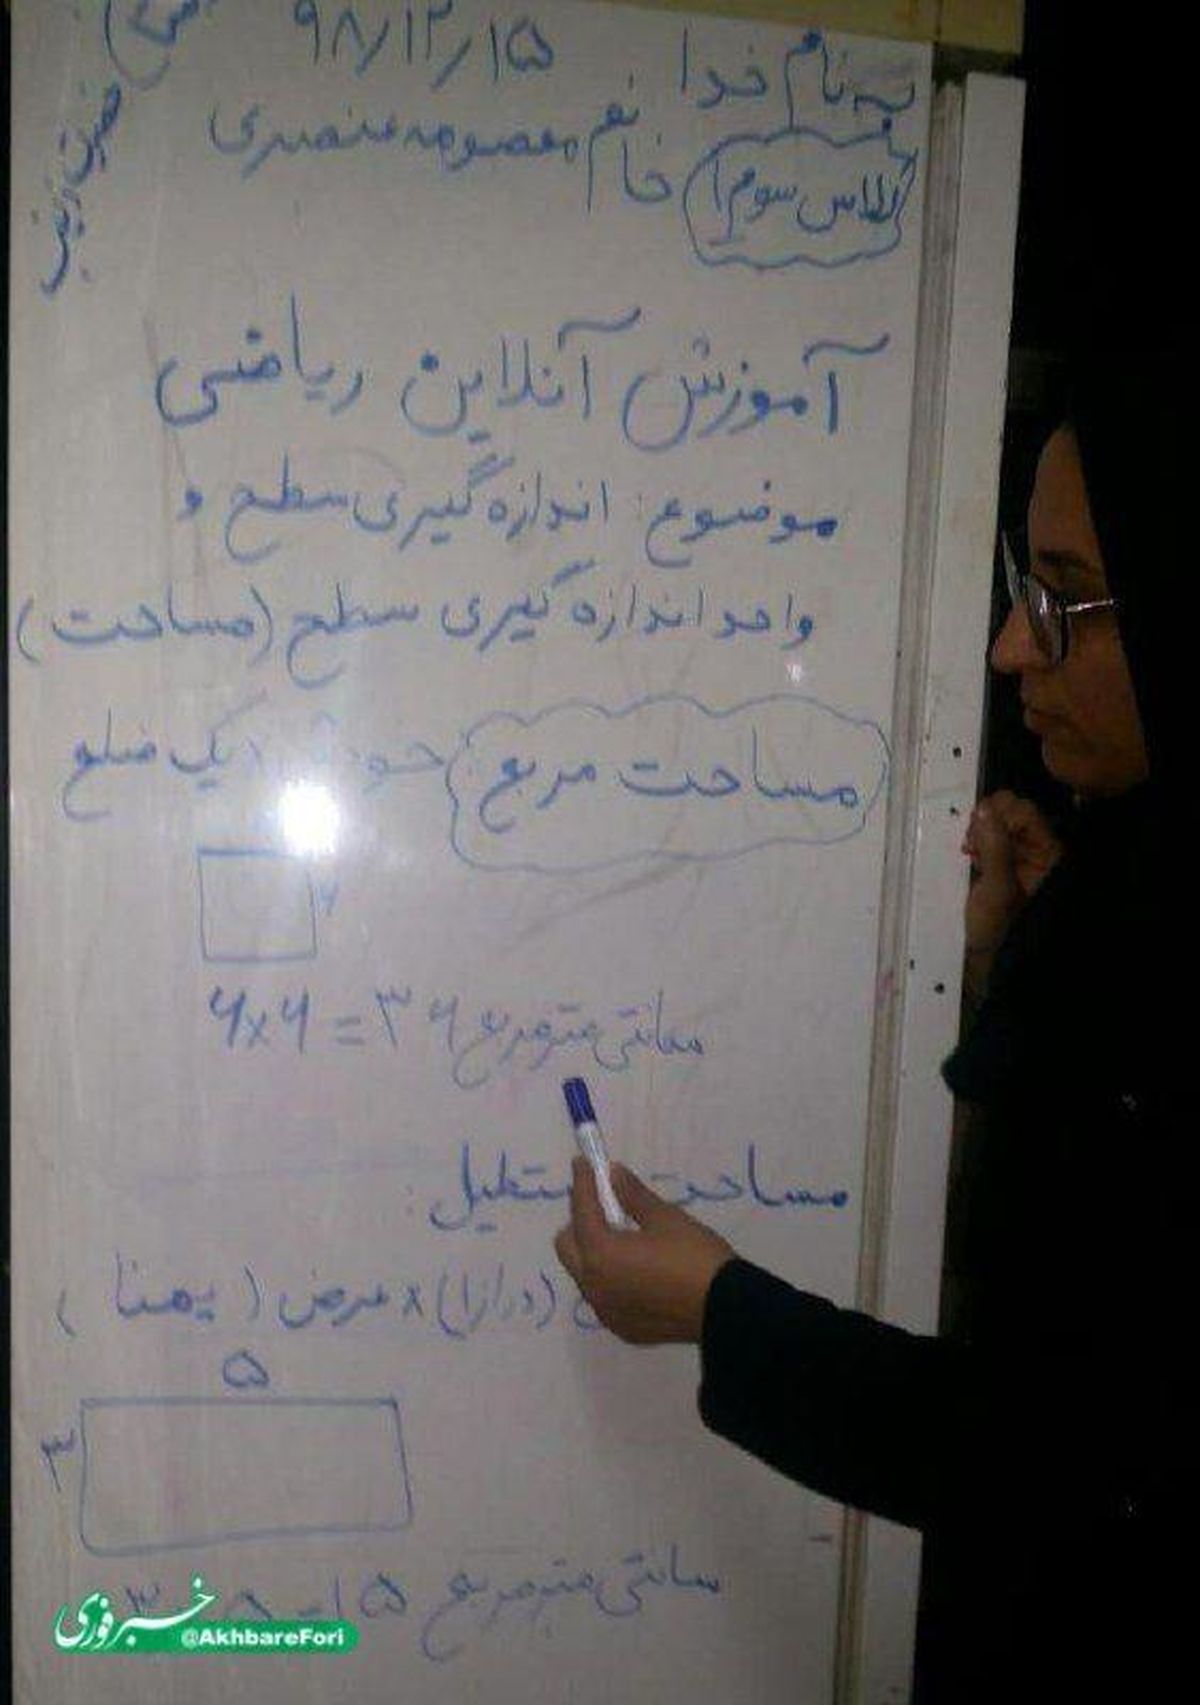 به نام خدا ۹۸٫۱۲٫۱۵
کلاس سوم ۱ خانم معصومه منصوری
آموزش آنلاین ریاضی
موضوع: اندازه گیری سطح و
واحد اندازه گیری سطح (مساحت)
مساحت مربع یک ضلع
۶
۶×۶=۳۶ سانتی متر مربع
مساحت
(درازا) × عرض ( پهنا )
۵
۳
۱۵ سانتی متر مربع
خبرفوری
@AkhbareFori